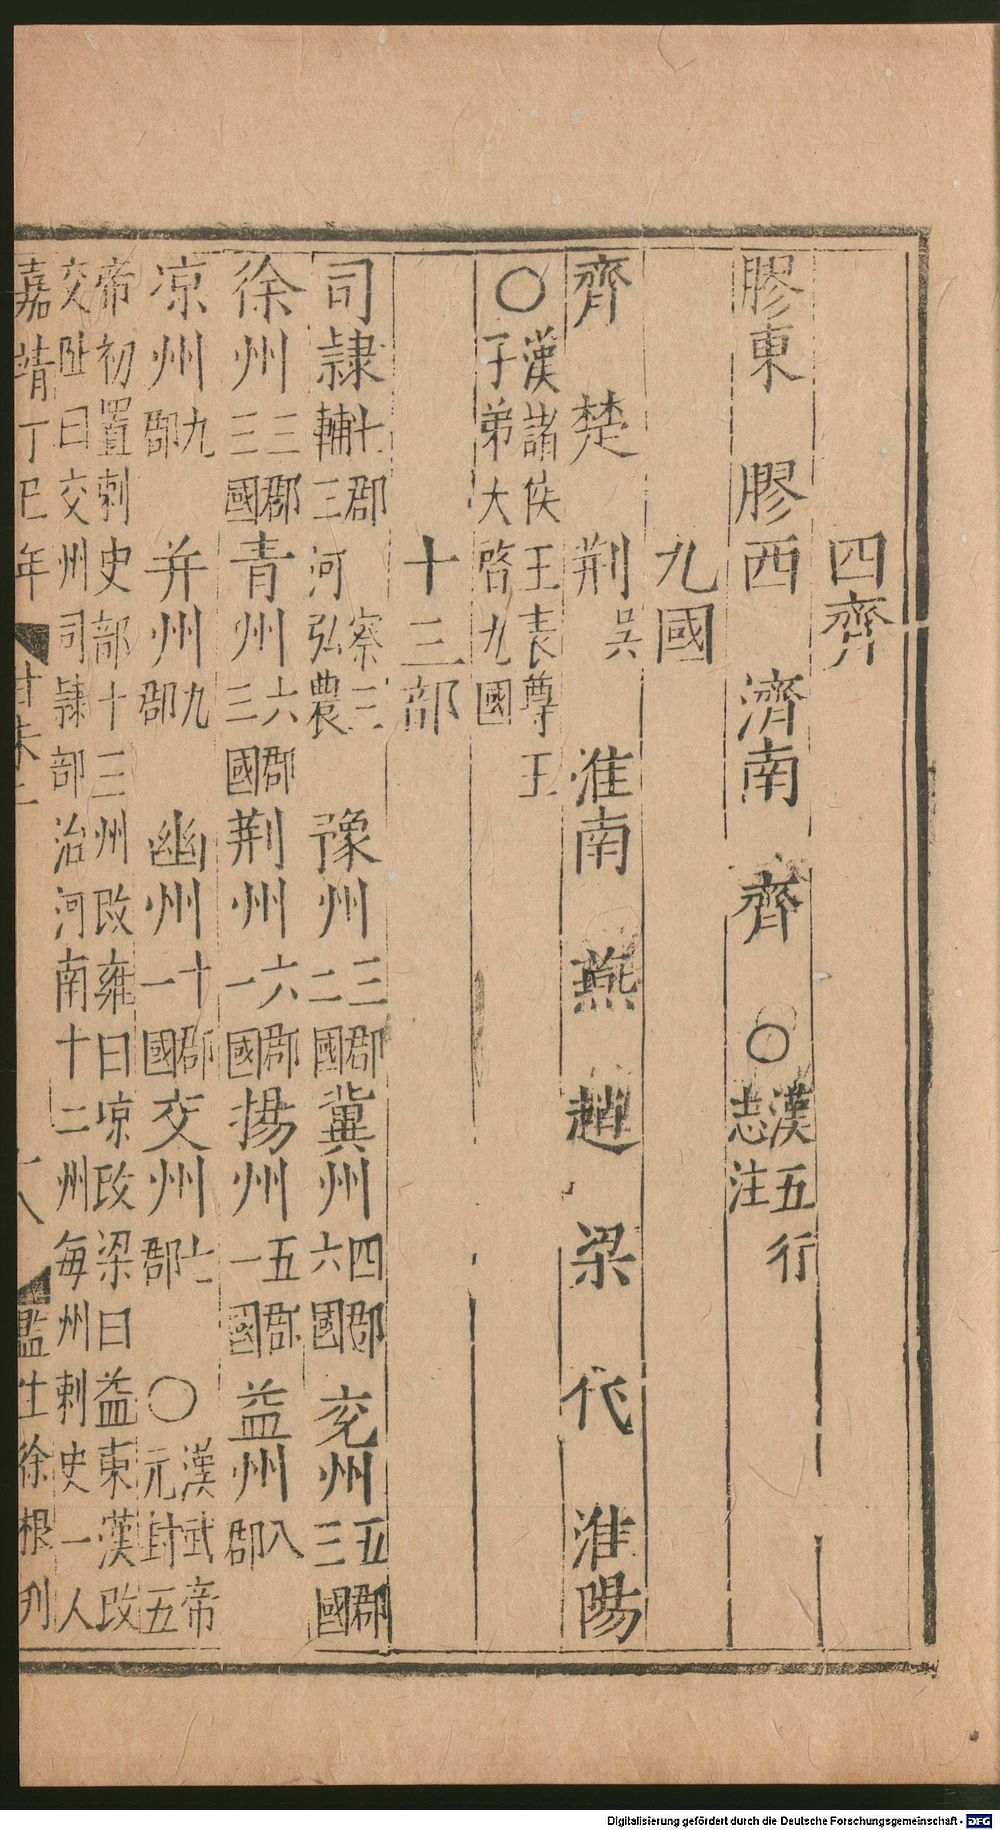 四齊
膠東 膠西 濟南 齊 〇漢五行志注
九國
齊 楚 荆吳 淮南 燕 趙 梁 代 淮陽
〇漢諸侯王表尊王子弟大啓九國
十三部
司隷七郡 察三輔三河弘農 豫州三郡二國 冀州四郡六國 兖州五郡三國
徐州三郡三國 青州六郡三國 荆州六郡一國 揚州五郡一國 益州八郡
凉州九郡 并州九郡 幽州十郡一國 交州七郡 〇漢武帝元封五
帝初置刺史部十三州改雍曰凉改梁曰益東漢改
交趾曰交州司隷部治河南十二州每州刺史一人
嘉靖丁巳年 監生徐根刋
Digitalisierung gefördert durch die Deutsche Forschungsgemeinschaft - DFG